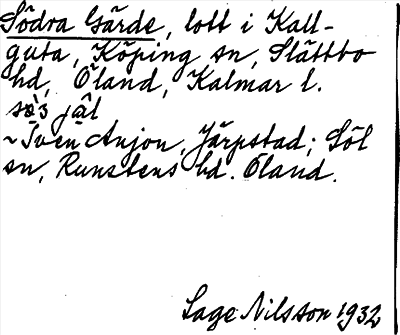 Södra Gärde, lott i Kall-
guta, Köping sn, Slättbo
hd, Öland, Kalmar l.
~ Sven Anjon, Järpstad; Löt
sn, Runstens hd. Öland.
Sage Nilsson 1932